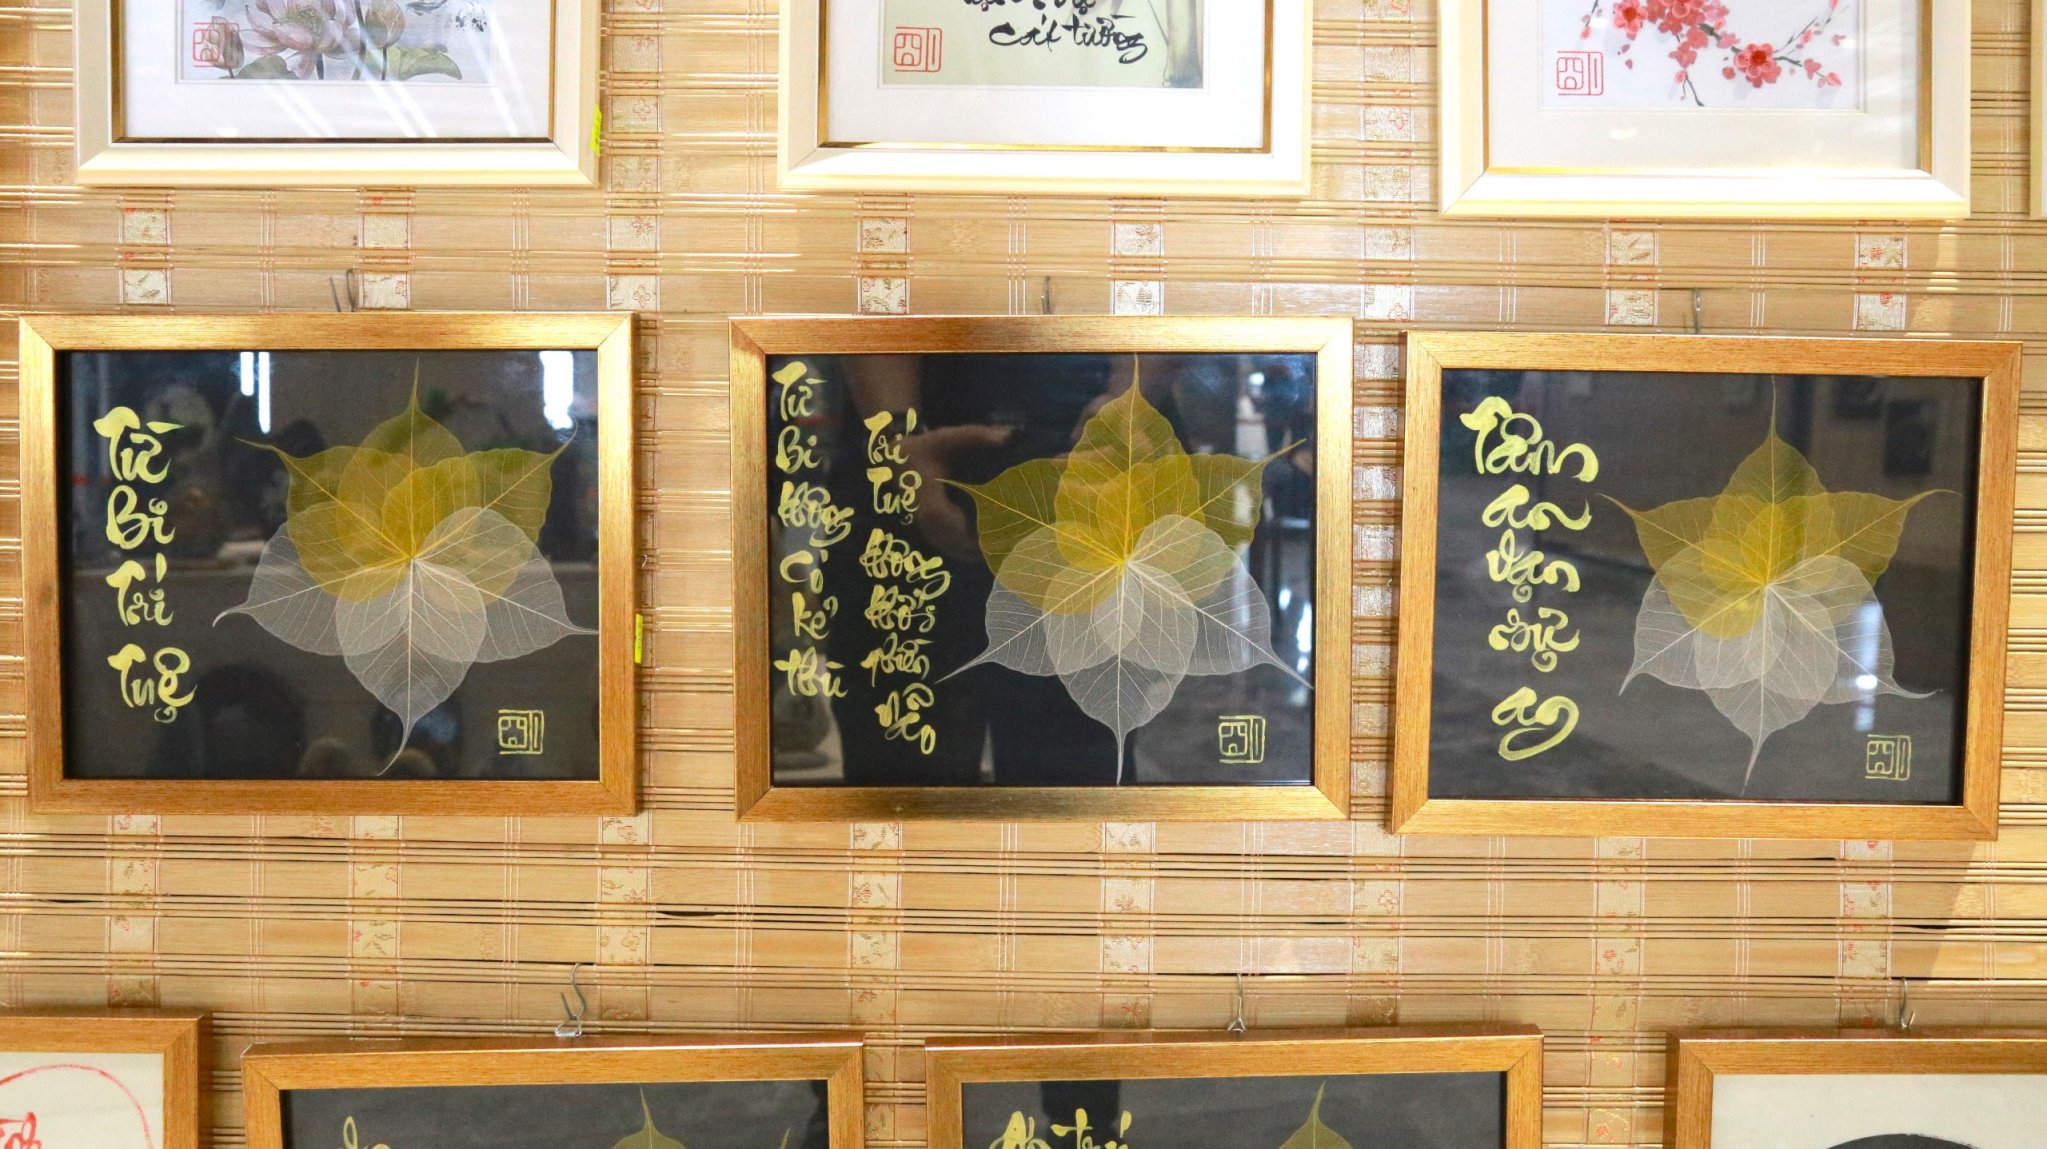 cát tường
Từ
Bi
Trí
Tuệ
Từ
Bi
Không
Có
kẻ
thù
Trí
Tuệ
Không
Khởi
Phiền
não
Tâm
an
vạn
sự
an